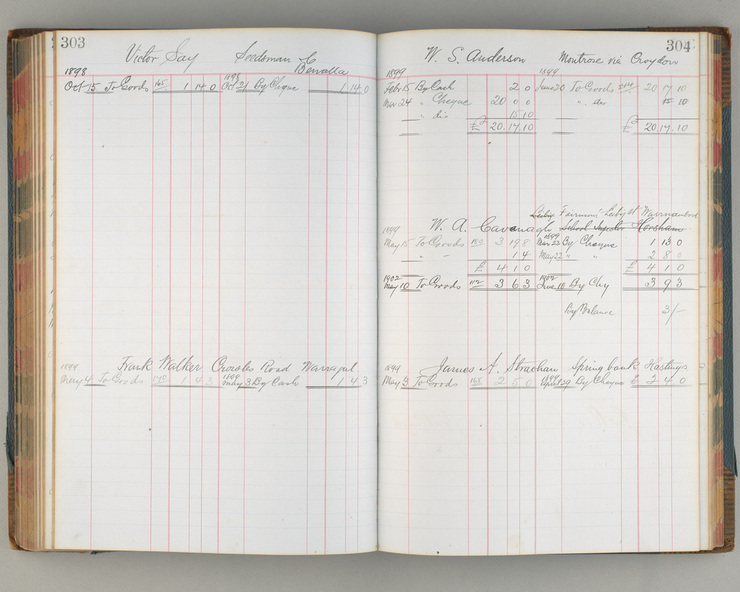 303
Victor Say Seedsman
Benalla
1898 1898
Oct 15 To Goods 165 1 14 0 Oct 21 By Chque 1 14 0
1899 1899
Frank Walker Croesus Road Warragul
May 4 To Goods 1 4 3 May 3 By Cash 1 4 3
304
W. S. Anderson Montrose via Croydon
1899 1899
Feb 15 By Cash 2 0 June 20 To Goods 20 17 10
Mar 24 " Cheque 20 0 0 " dis 10
" dis 15 10
£ 20 17 10 £ 20 17 10
Fairmont Liebig St Warrnambool
W. A. Cavanagh School Horsham
1899 1899
May 15 To Goods 153 3 19 8 Mar 23 By Cheque 1 13 0
" " 1 4 May 22 " " 2 8 0
£ 4 1 0 £ 4 1 0
1902 1902
May 10 To Goods 112 3 6 3 June 18 By Chq 3 9 3
By Balance 3/-
James A. Strachan Springbank Hastings
1899 1899
May 3 To Goods 158 2 5 0 April 29 By Cheque £ 2 4 0